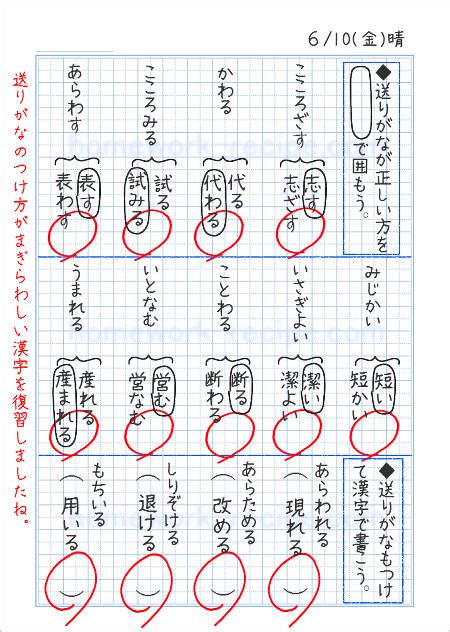 6/10(金)晴
◆送りがなが正しい方を
で囲もう。
こころざす
志す
志ざす
かわる
代る
代わる
こころみる
試る
試みる
あらわす
表す
表わす
みじかい
短い
短かい
いさぎよい
潔い
潔よい
ことわる
断る
断わる
いとなむ
営む
営なむ
うまれる
産れる
産まれる
◆送りがなもつけ
て漢字で書こう。
あらわれる
(現れる)
あらためる
(改める)
しりぞける
(退ける)
もちいる
(用いる)
送りがなのつけ方がまぎらわしい漢字を復習しましたね。